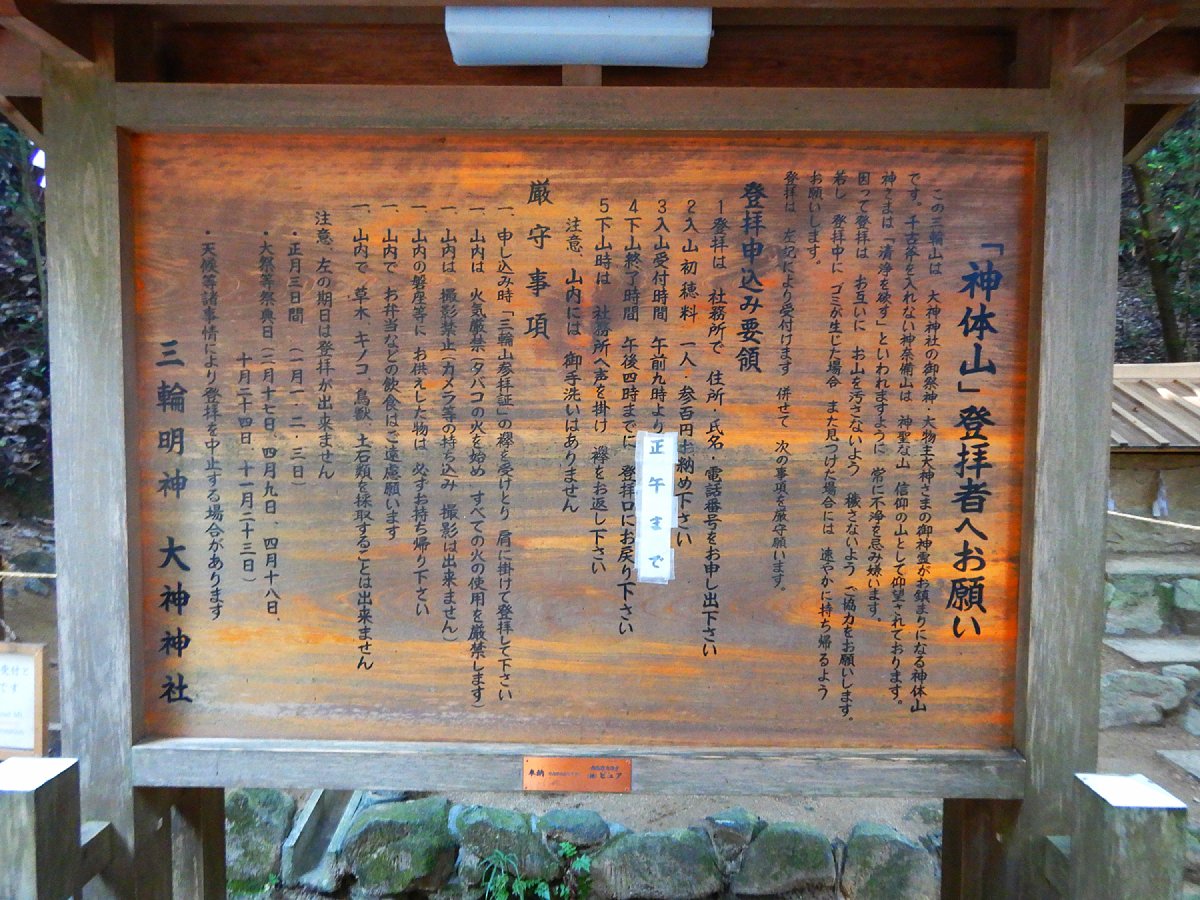 「神体山」登拝者へお願い
この三輪山は 大神神社の御祭神・大物主大神さまの御神霊がお鎮まりになる神体山
です。千古斧を入れない神奈備山は 神聖な山 信仰の山として仰望されております。
神さまは「清浄を欲す」といわれますように 常に不浄を忌み嫌います。
因って登拝は お互いに お山を汚さないよう 穢さないよう ご協力をお願いします。
若し 登拝中に ゴミが生じた場合 また見つけた場合には 速やかに持ち帰るよう
お願いします。
登拝は 左記により受付けます 併せて 次の事項を厳守願います。
登拝申込み要領
1 登拝は 社務所で 住所・氏名・電話番号をお申し出下さい
2 入山初穂料 一人・参百円お納め下さい
3 入山受付時間 午前九時より
正午まで
4 下山終了時間 午後四時までに 登拝口にお戻り下さい
5 下山時は 社務所へ声を掛け 襷をお返し下さい
注意、山内には 御手洗いはありません
厳守事項
一、申し込み時「三輪山参拝証」の襷を受けとり 肩に掛けて登拝して下さい
一、山内は 火気厳禁(タバコの火を始め すべての火の使用を厳禁します)
一、山内は 撮影禁止(カメラ等の持ち込み 撮影は出来ません)
一、山内の磐座等に お供えした物は 必ずお持ち帰り下さい
一、山内で お弁当などの飲食はご遠慮願います
一、山内で 草木、キノコ、鳥獣、土石類を採取することは出来ません
注意、左の期日は登拝が出来ません
・正月三日間 (一月一・二・三日)
・大祭等祭典日(二月十七日、四月九日、四月十八日、
十月二十四日、十一月二十三日)
・天候等諸事情により登拝を中止する場合があります
三輪明神 大神神社
奉納
㈱ピュア